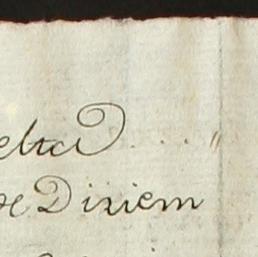 elta . . . "
de Diziem